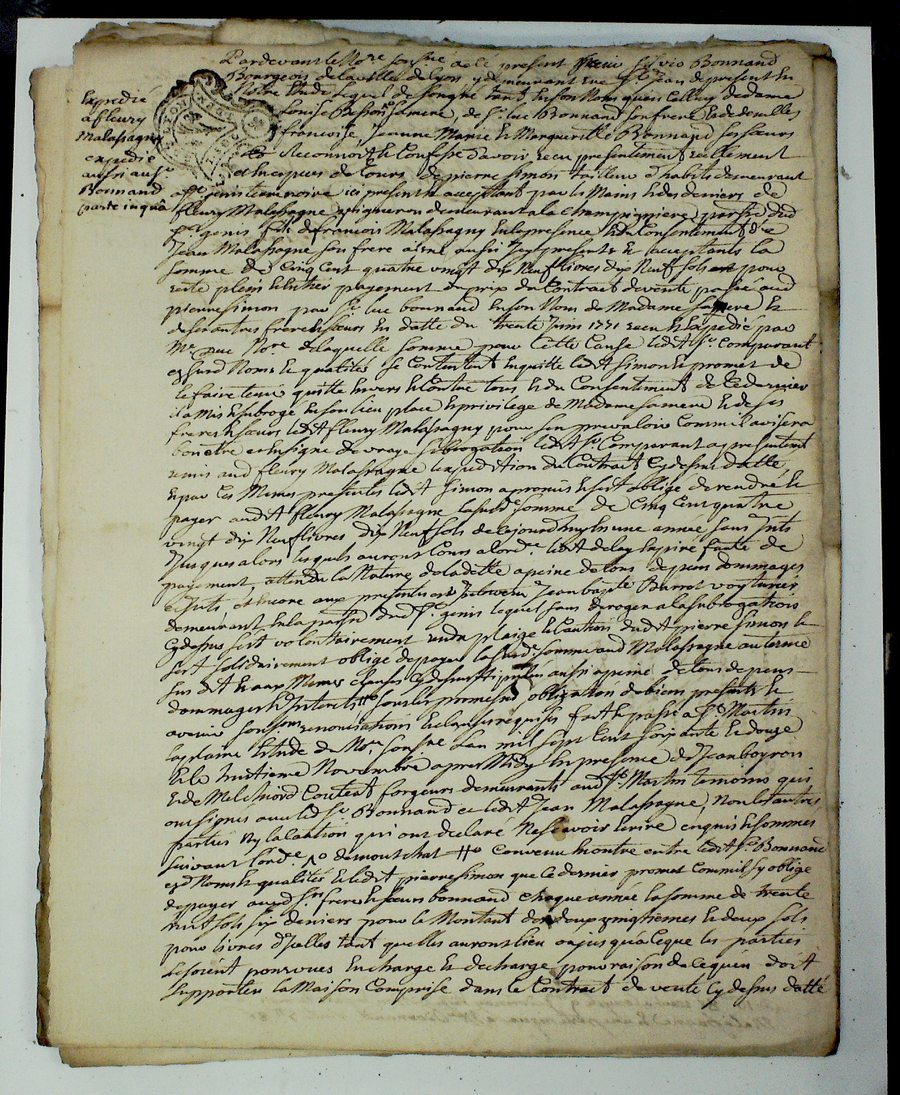 Pardevant le No.re sousné a été present Sr
Bourgeois de la ville de Lyon y demeurant rue St Jean de present en
Notre Etude lequel de son gré tant en son Nom qu'en celluy de dame
Louise Besson sa mere, de Sr Luc Bonnand son frere et de dlles
francoise, Jeanne Marie et Marguerite Bonnand ses sœurs
Reconnoit et Confesse d'avoir receu presentement reellement
et en especes de Cours de pierre Simon tailleur d'habits demeurant
ici present et acceptant par les Mains et des deniers de
fleury Malassagne vigneron demeurant a la
genis fils de francois Malassagny en la presence et du Consentement de
Jean Malassagne son frere ainé aussi icy present et acceptants la
somme de Cinq Cent quatre vingt dix Neuf livres dix Neuf sols pour
reste plein et entier payement du prix du Contrat de vente passé aud
pierre Simon par Sr luc bonnand en son Nom de Madame sa mere et
de ses autres freres et sœurs en datte du trente Juin 1771 receu et Expedié par
Me No.re de laquelle somme pour cette Cause led Sr Comparant
esd Noms et qualités se Contentent en quitte led Simon et promet de
le faire tenir quitte envers et Contre tous et du Consentement de ce dernier
il a Mis et subrogé en son lieu place et privilege de Madame sa mere et de ses
freres et sœurs led fleury Malassagny pour s'en prevaloir Comme il avisera
bon etre et en signe de vraye subrogation led Sr Comparant a presentement
remis aud fleury Malassagne expedition du Contrat Cy dessus datté,
et par ces Memes presentes led Simon a promis et s'est obligé de rendre et
payer aud fleury Malassagne lad somme de Cinq Cent quatre
vingt dix Neuf livres dix Neuf sols de ce jourd'huy en une année sans Jnts
Jusques alors lesquels auront Cours alors led delay Expiré faute de
payement attendu la Nature de la dette a peine de tous depens dommages
et Jnts et encore aux presentes est Intervenu Jean baptte Barret voyturier
demeurant en la parsse dud St genis lequel sans deroger a la subrogation
Cy dessus s'est volontairement rendu plaige et Caution dud pierre Simon et
s'est solidairement obligé de payer lad somme aud Malassagne au terme
sus dit et aux Memes Clauses Cy dessus stipulées aussi a peine de tous depens
dommages et Interests sous les promesses obligation de biens presents et
avenir renonciations et Clauses requises fait et passé a St Martin
la plaine Etude de No.re sousné l'an mil sept Cent soixante et douze
et le huitieme Novembre apres Midy en presence de Jean boyron
et de Melchiord Coutent forgeurs demeurants aud St Martin temoins qui
ont signés avec led Sr Bonnand et led Jean Malassagne, Non les autres
parties Ny la Caution qui ont declaré Ne scavoir ecrire enquis et sommés
suivant l'orde Convenu en outre entre led Sr Bonnand
esd Noms et qualités et led pierre Simon que ce dernier promet Comme il s'y oblige
de payer aud Sr frere et sœurs bonnand Chaque année la somme de trente
huit sols six deniers pour le Montant des deux vingtiemes et deux sols
pour livres d'iceux tant qu'elles auront lieu ou jusqu'a ce que les parties
se soient pourvues en charge et decharge pour raison de ce qu'en doit
supporter la Maison Comprise dans le Contrat de vente Cy dessus datté
Expedié
a fleury
Malassagny
expedié
aussi au Sr
Bonnand